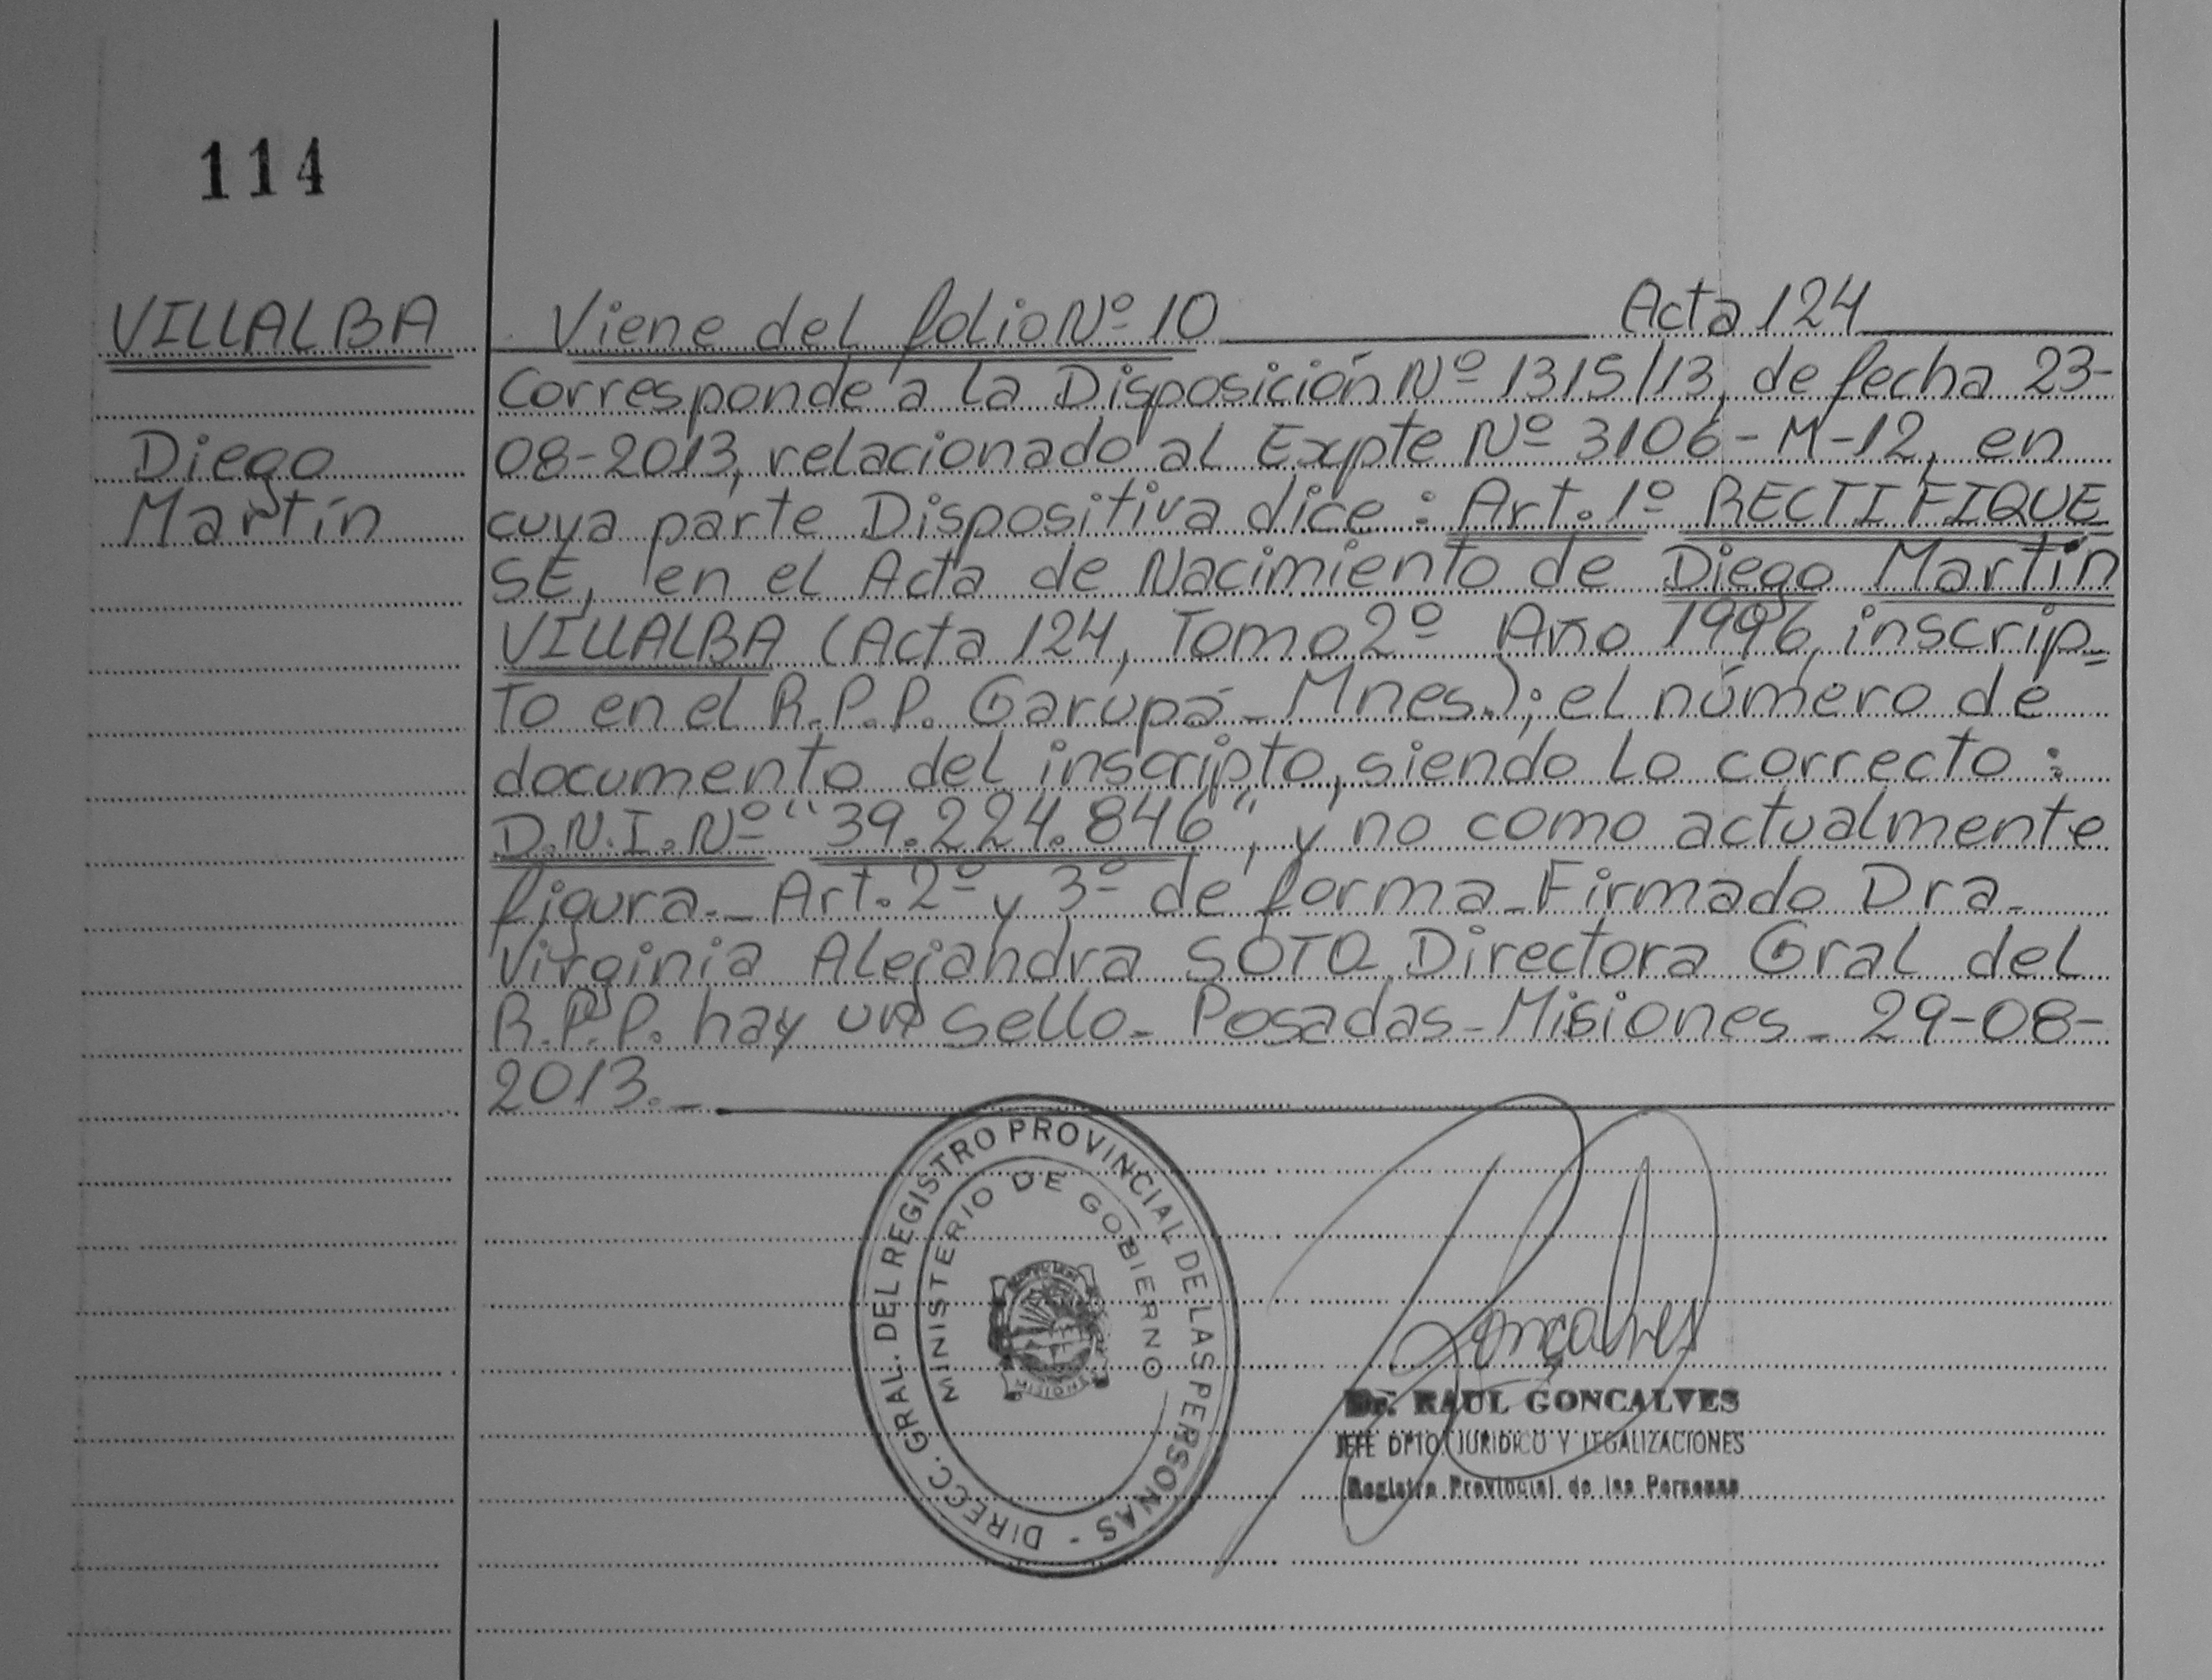 114
VILLALBA
Diego
Martín
Viene del folio Nº 10 Acta 124
Corresponde a la Disposición Nº 1315/13, de fecha 23-
08-2013, relacionado al Expte Nº 3106-M-12, en
cuya parte Dispositiva dice: Art. 1º RECTIFIQUE
SE, en el Acta de Nacimiento de Diego Martín
VILLALBA (Acta 124, Tomo 2º Año 1996, inscrip-
to en el R.P.P. Garupá - Mnes.); el número de
documento del inscripto, siendo lo correcto:
D.N.I. Nº "39.224.846", y no como actualmente
figura._ Art. 2º y 3º de forma_Firmado Dra_
Virginia Alejandra SOTO Directora Gral del
R.P.P. hay un sello_ Posadas_Misiones_ 29-08-
2013._
DIRECC. GRAL. DEL REGISTRO PROVINCIAL DE LAS PERSONAS -
MINISTERIO DE GOBIERNO
MISIONES
Gonçalves
Dr. RAUL GONCALVES
JEFE DPTO. JURIDICO Y LEGALIZACIONES
Registro Provincial de las Personas